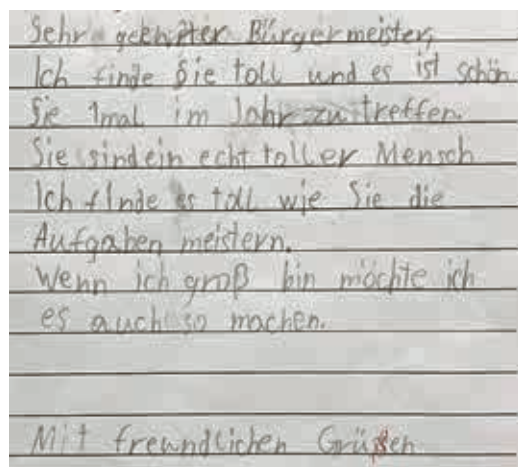 Sehr geehrter Bürgermeister,
Ich finde Sie toll und es ist schön
Sie 1mal im Jahr zu treffen.
Sie sind ein echt toller Mensch
Ich finde es toll wie Sie die
Aufgaben meistern.
Wenn ich groß bin möchte ich
es auch so machen.
Mit freundlichen Grüßen